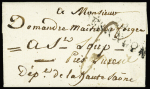 A Monsieur
Demandre Maitre de forges
A St Loup
Près Luxeuil
Dépt de la haute Saône